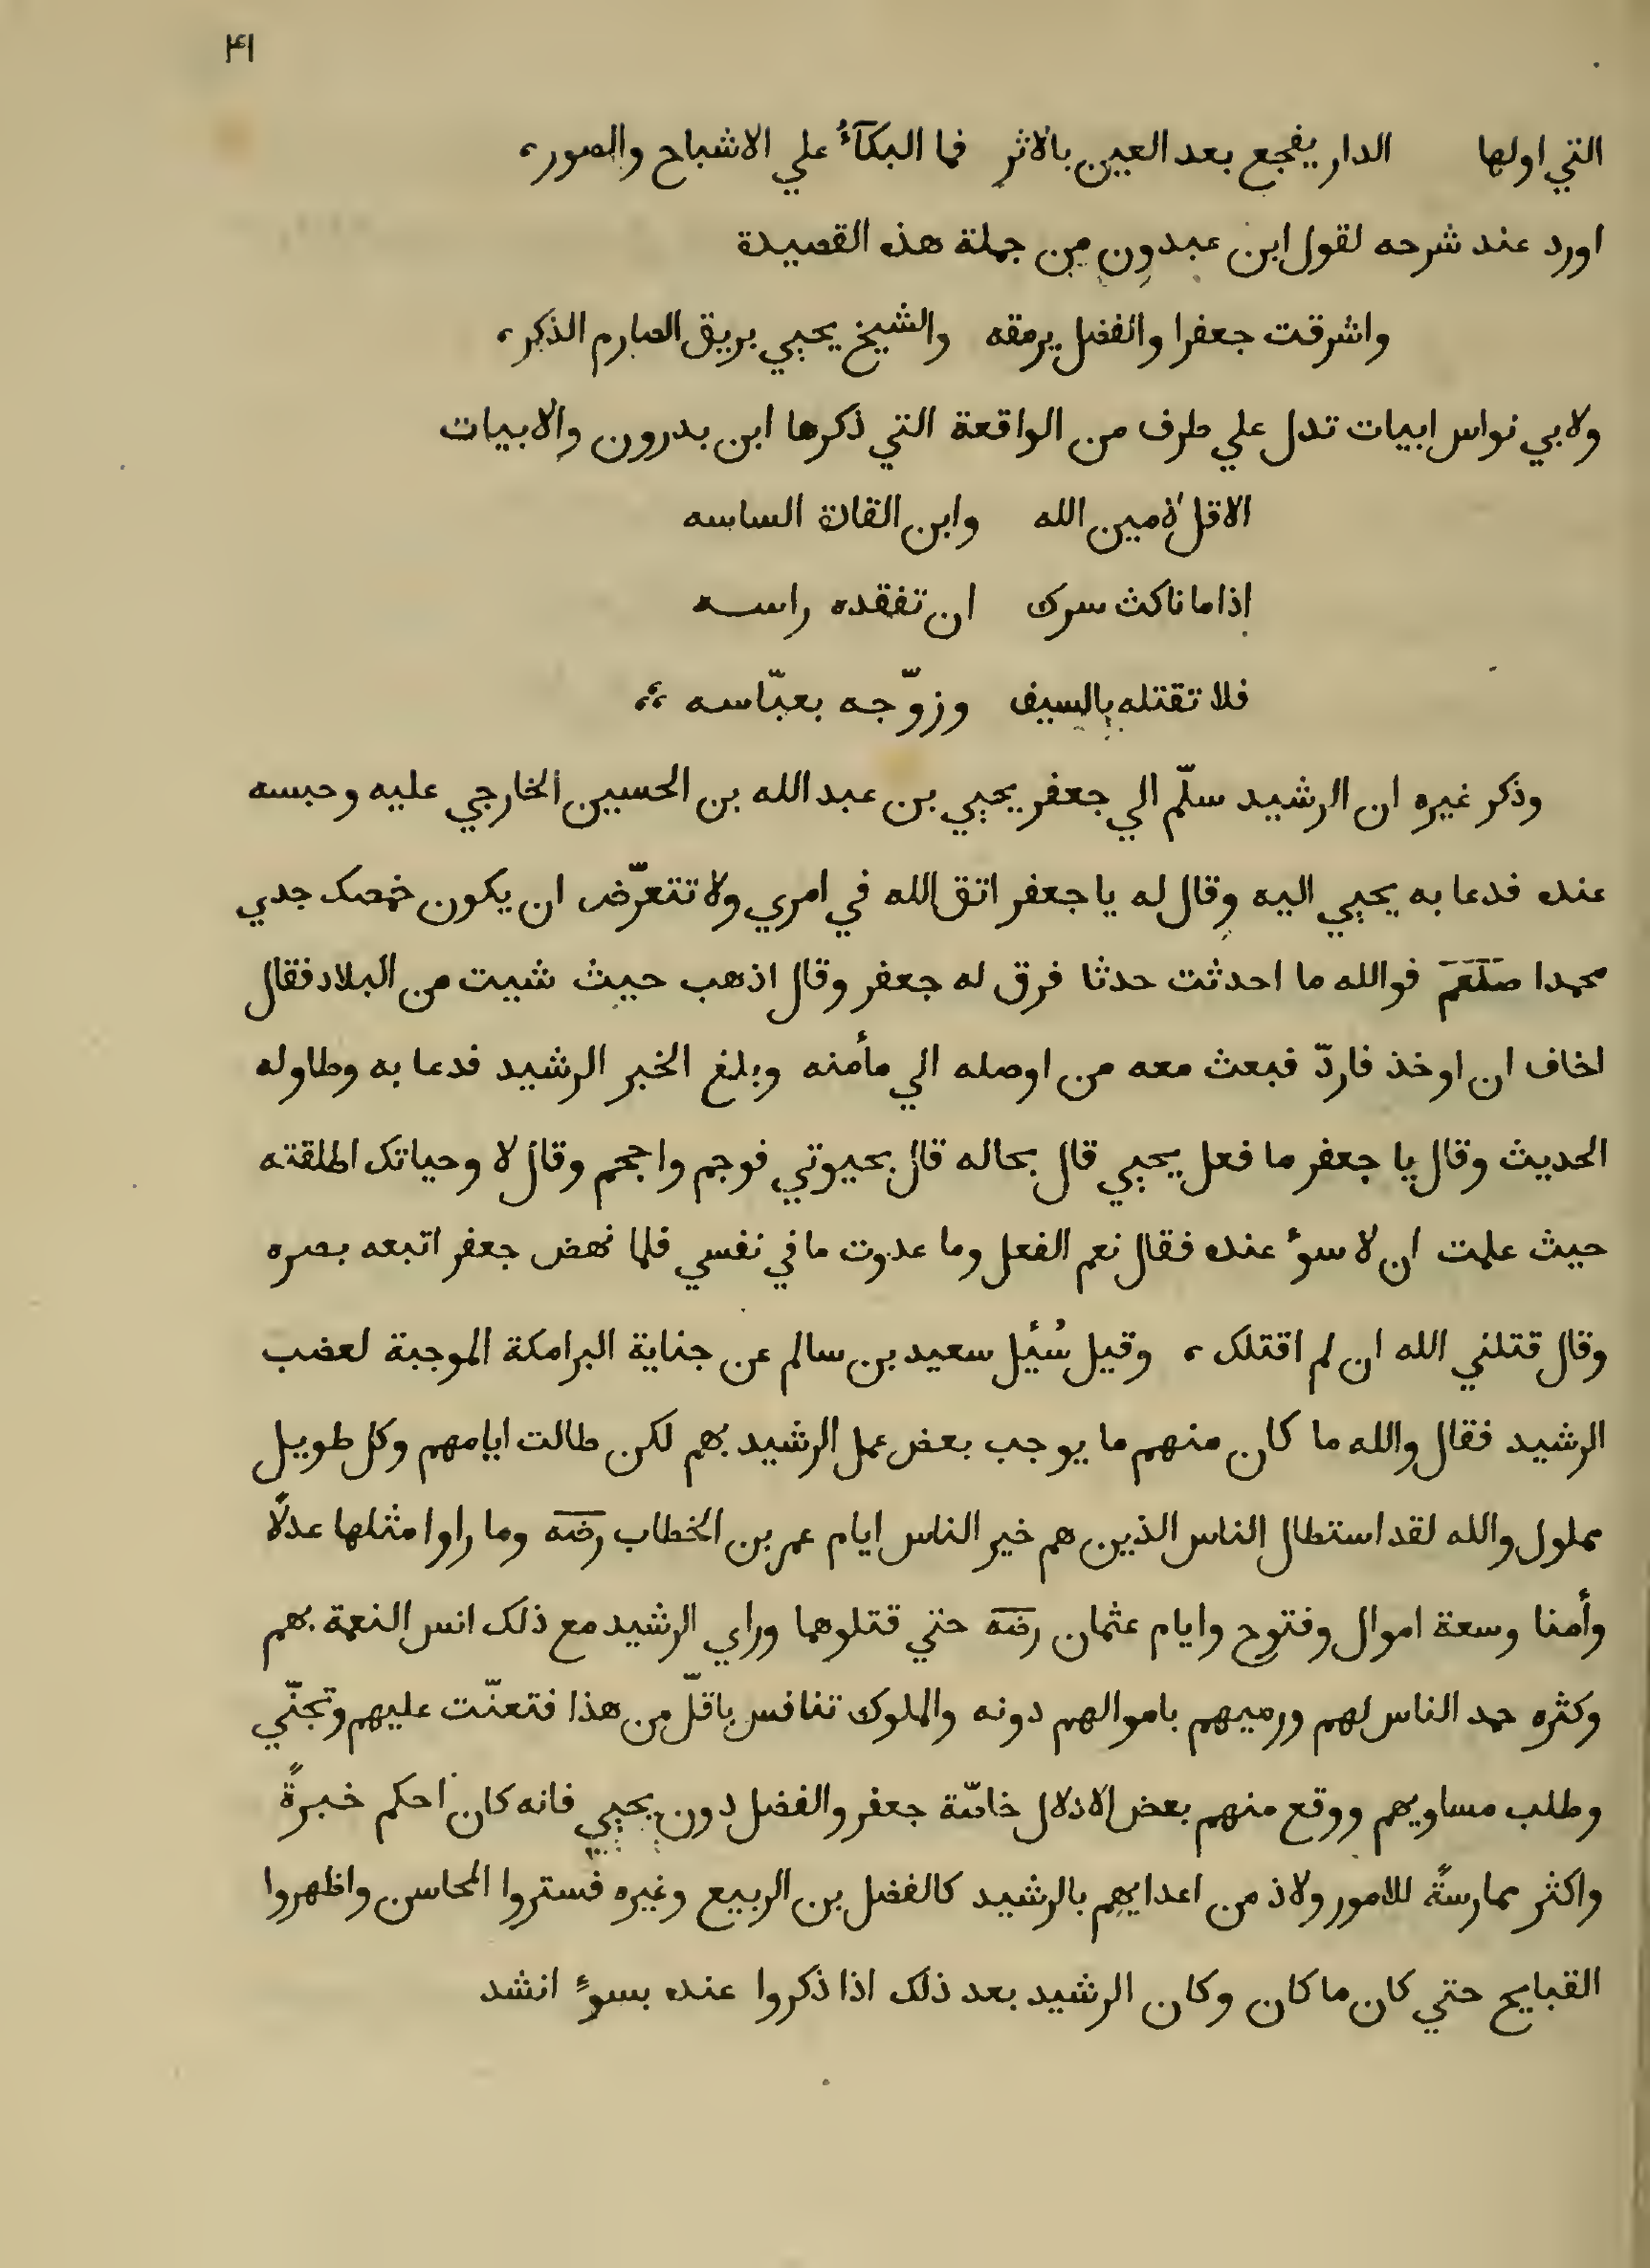 ٤١
التي اولها الدار يفجع بعد العين بالاثر فما البكآءُ علي الاشباح والصور،
اورد عند شرحه لقول ابن عبدون من جملة هذه القصيدة
واشرقت جعفرا والفضل يرمقه والشيخ يحيي بريق الصارم الذكر،
ولابي نواس ابيات تدل علي طرف من الواقعة التي ذكرها ابن بدرون والابيات
الا قل لأمين الله وابن القادة الساسه
اذا ما ناكث سرك ان تفقده راسه
فلا تقتله بالسيف وزوّجه بعبّاسه
وذكر غيره ان الرشيد سلّم الي جعفر يحيي بن عبد الله بن الحسين الخارجي عليه وحبسه
عنده فدعا به يحيي اليه وقال له يا جعفر اتق الله في امري ولا تتعرّض ان يكون خصمك جدي
محمدا صلعم فوالله ما احدثت حدثا فرق له جعفر وقال اذهب حيث شيت من البلاد فقال
اخاف ان اوخذ فاردّ فبعث معه من اوصله الي مأمنه وبلغ الخبر الرشيد فدعا به وطاوله
الحديث وقال يا جعفر ما فعل يحيي قال بحاله قال بحيوتي فوجم واحجم وقال لا وحياتك اطلقته
حيث علمت ان لا سوءَ عنده فقال نعم الفعل وما عدوت ما في نفسي فلما نهض جعفر اتبعه بصره
وقال قتلني الله ان لم اقتلك، وقيل سُئيل سعيد بن سالم عن جناية البرامكة الموجبة لغضب
الرشيد فقال والله ما كان منهم ما يوجب بعض عمل الرشيد بهم لكن طالت ايامهم وكل طويل
مملول والله لقد استطال الناس الذين هم خير الناس ايام عمر بن الخطاب رضه وما راوا مثلها عدلًا
وأمنا وسعة اموال وفتوح وايام عثمان رضه حتي قتلوهما وراي الرشيد مع ذلك انس النعمة بهم
وكثره حمد الناس لهم ورميهم باموالهم دونه والملوك تنافس باقلّ من هذا فتعنّت عليهم وتجنّي
وطلب مساويهم ووقع منهم بعض الادلال خاصّة جعفر والفضل دون يحيي فانه كان احكم خبرةً
واكثر ممارسةً للامور ولاذ من اعدايهم بالرشيد كالفضل بن الربيع وغيره فستروا المحاسن واظهروا
القبايح حتي كان ما كان وكان الرشيد بعد ذلك اذا ذكروا عنده بسوءٍ انشد